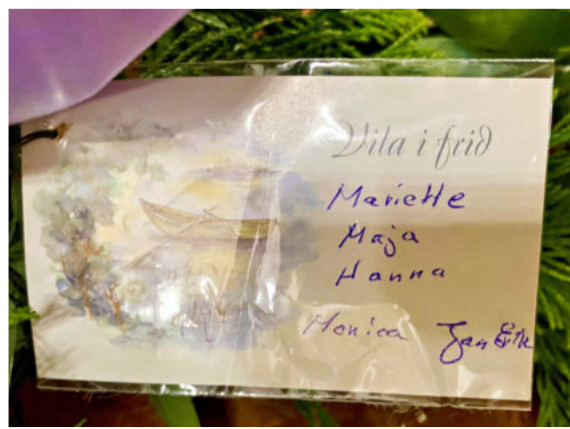 Vila i frid
Mariette
Maja
Hanna
Monica Jan Erik